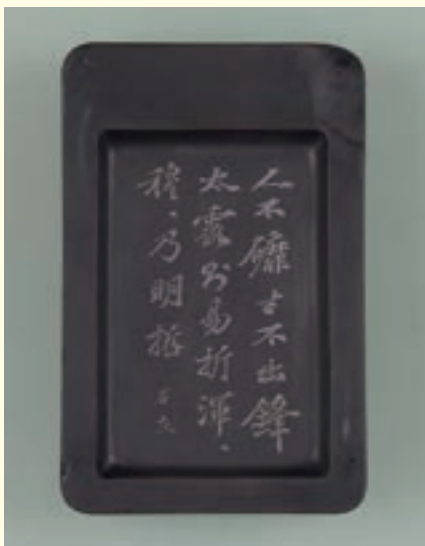 人不磨𠮷不出鋒
太露則易折渾、
穆、乃明哲